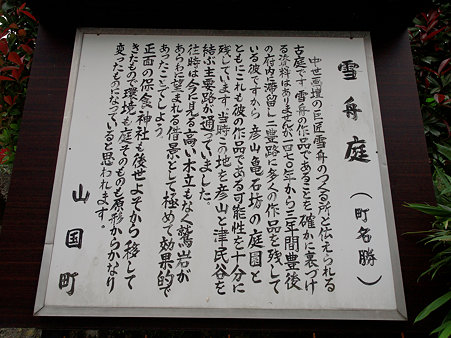 雪舟庭
（町名勝）
中世画壇の巨匠雪舟のつくる所と伝えられる
古庭です。雪舟の作品であることを確かに裏づけ
る資料はありませんが一四七〇年から三年間豊後
の府内に滞留し二豊路に多くの作品を残して
いる彼ですから、彦山亀石坊の庭園と
ともにこれも彼の作品である可能性を十分に
残しています。当時この地を彦山と津民谷を
結ぶ主要路が通っていました。
往時は今に見る高い木立もなく鷲岩が
あらわに望まれる借景として極めて効果的で
あったことでしょう。
正面の保食神社も後世よそから移して
きたもので環境も庭そのものも原形からかなり
変ったものになっていると思われます。
山国町